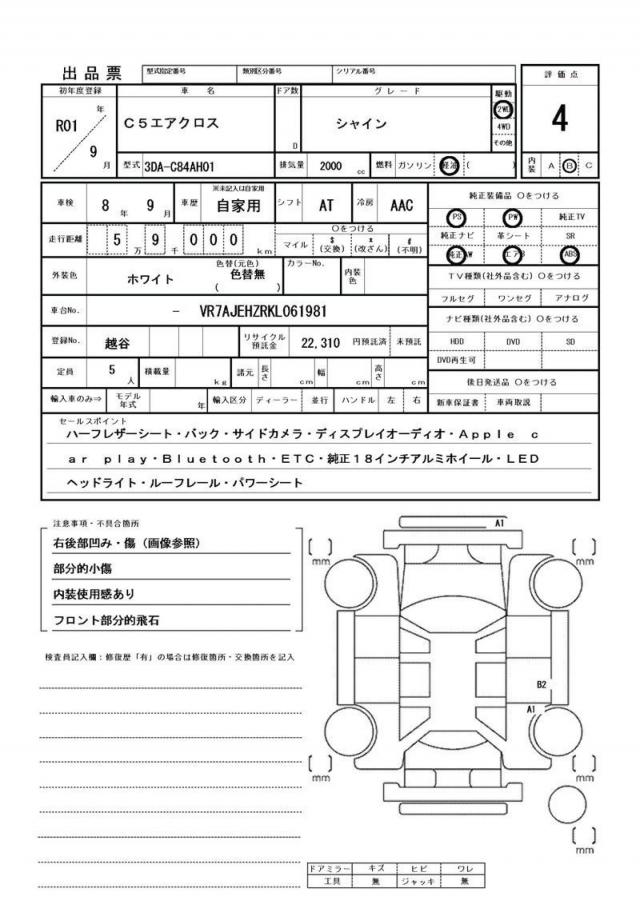 出品票 型式指定番号 類別区分番号 シリアル番号
初年度登録 車名 ドア数 グレード 駆動 評価点
R01 年 9 月 C5エアクロス D シャイン 2WD 4WD その他 4
型式 3DA-C84AH01 排気量 2000 cc 燃料 ガソリン 軽油 ( ) 内装 A B C
車検 8 年 9 月 車歴 ※未記入は自家用 自家用 シフト AT 冷房 AAC 純正装備品 Oをつける
走行距離 5 万 9 千 0 0 0 km Oをつける マイル $ (交換) * (改ざん) # (不明) PS PW 純正TV
純正ナビ 革シート SR
純正AW エアB ABS
外装色 ホワイト 色替(元色) 色替無 ( ) カラーNo. 内装色 TV種類(社外品含む) Oをつける
フルセグ ワンセグ アナログ
車台No. - VR7AJEHZRKL061981 ナビ種類(社外品含む) Oをつける
登録No. 越谷 リサイクル預託金 22,310 円預託済 未預託 HDD DVD SD
DVD再生可
定員 5 人 積載量 kg 諸元 長さ cm 幅 cm 高さ cm 後日発送品 Oをつける
輸入車のみ⇒ モデル年式 年 輸入区分 ディーラー 並行 ハンドル 左 右 新車保証書 車両取説
セールスポイント
ハーフレザーシート・バック・サイドカメラ・ディスプレイオーディオ・Apple c
ar play・Bluetooth・ETC・純正18インチアルミホイール・LED
ヘッドライト・ルーフレール・パワーシート
注意事項・不具合箇所
右後部凹み・傷(画像参照)
部分的小傷
内装使用感あり
フロント部分的飛石
検査員記入欄:修復歴「有」の場合は修復箇所・交換箇所を記入
A1
[ ] mm [ ] mm
B2
A1
[ ] mm [ ] mm
[ ] mm
ドアミラー キズ ヒビ ワレ
工具 無 ジャッキ 無